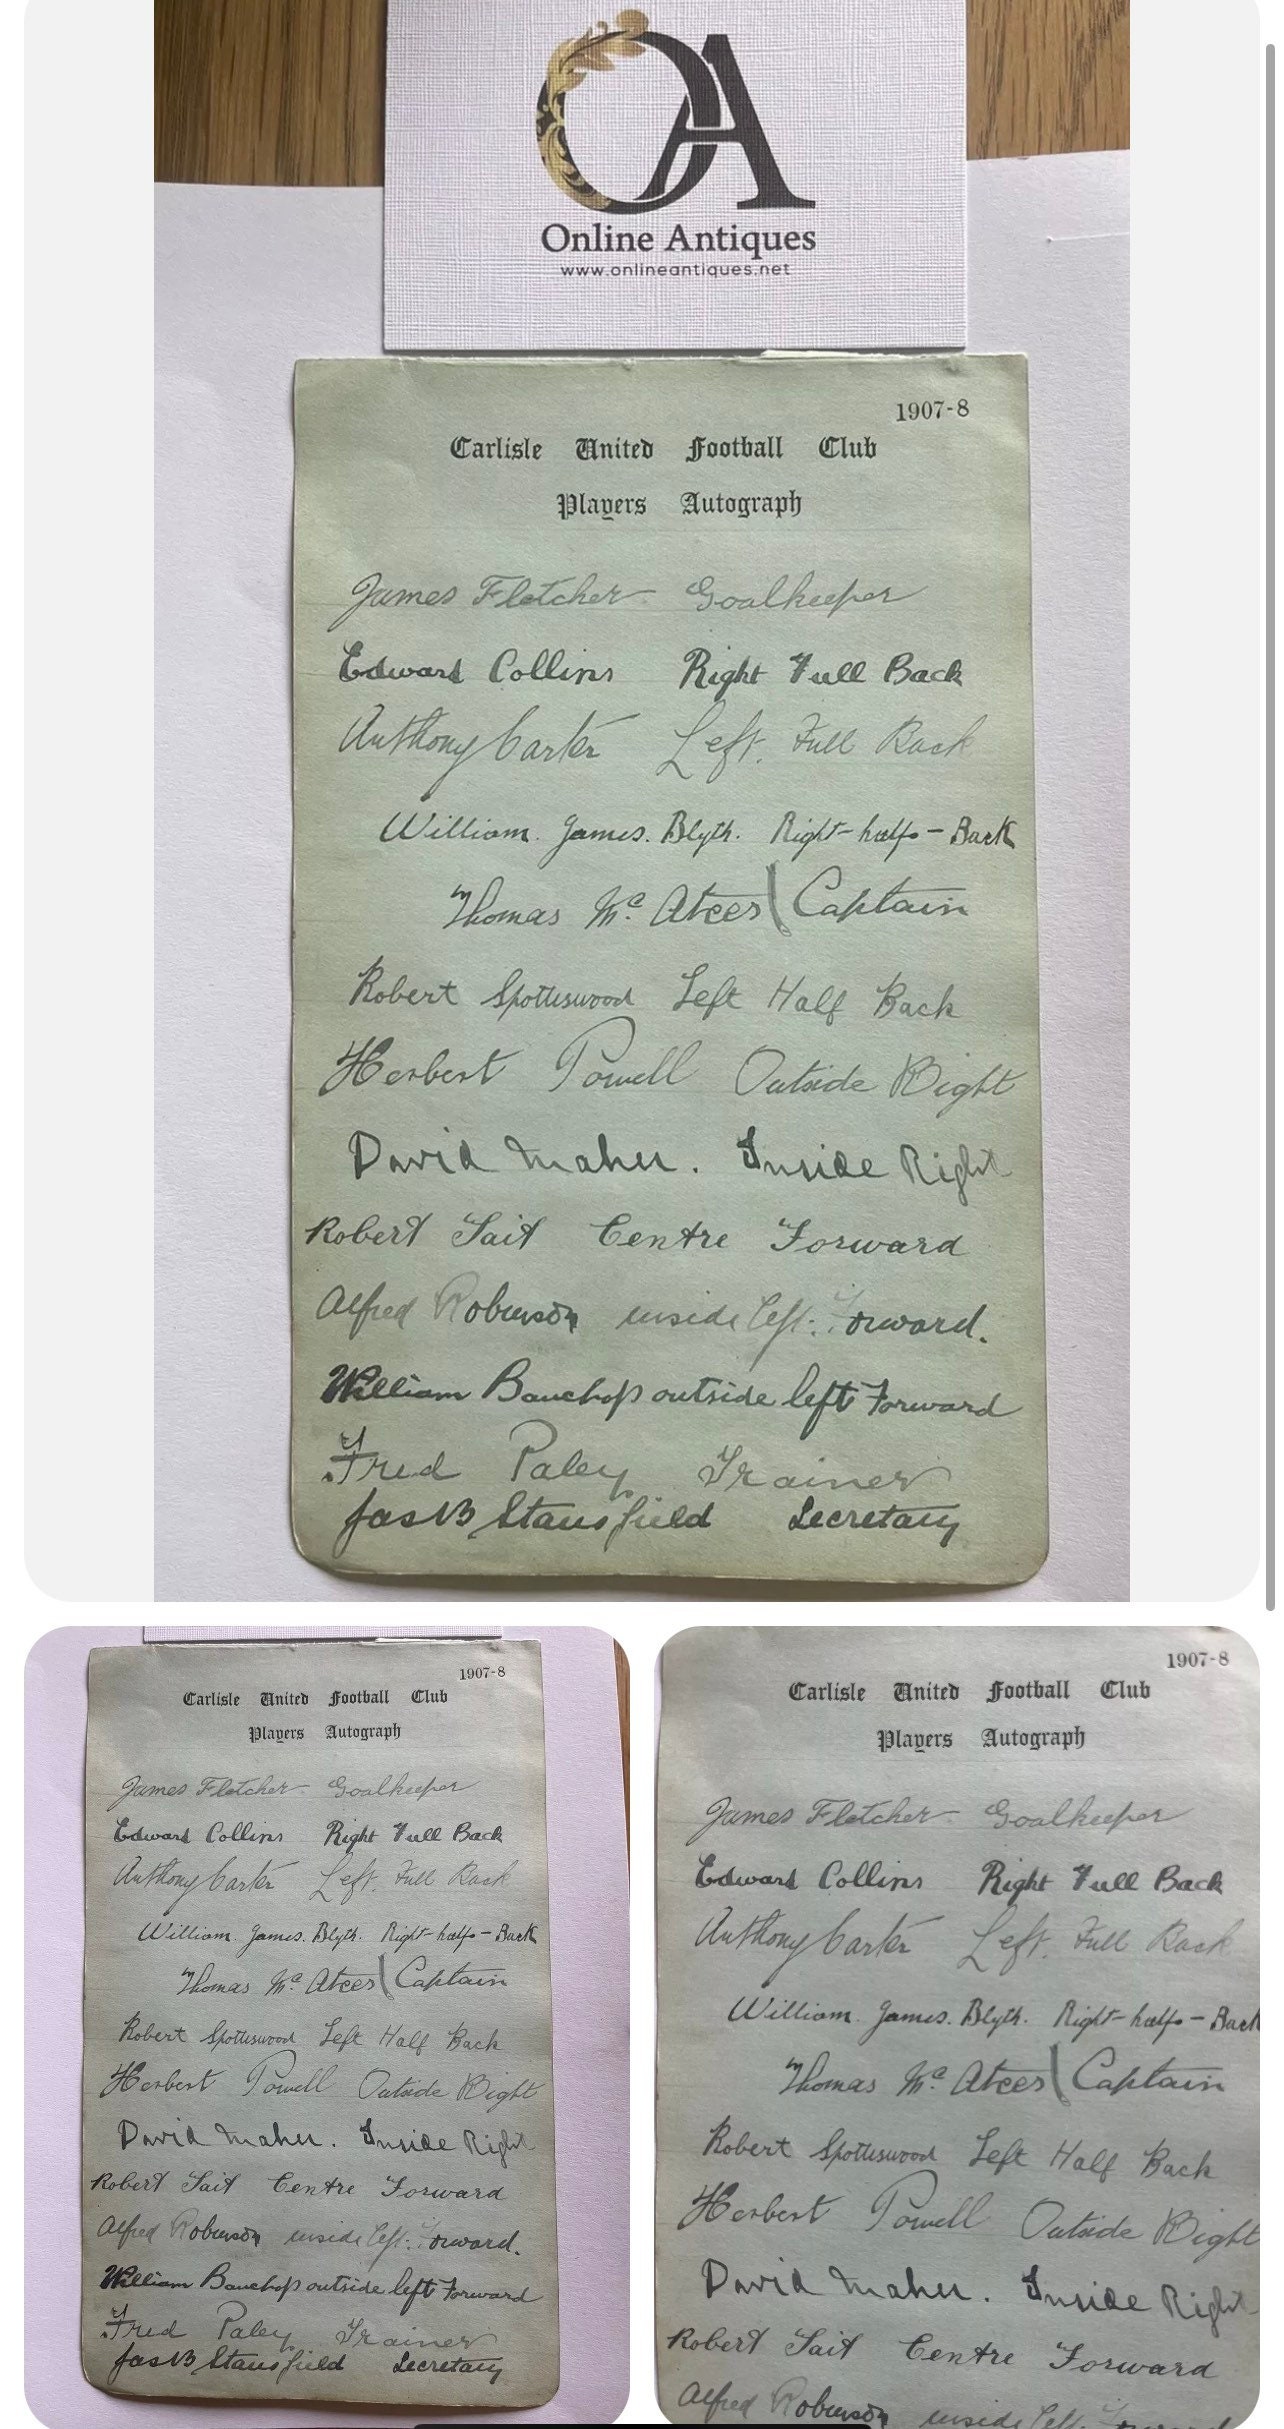 OA
Online Antiques
www.onlineantiques.net
1907-8
Carlisle United Football Club
Players Autograph
James Fletcher Goalkeeper
Edward Collins Right Full Back
Anthony Carter Left. Full Back
William. James. Blyth. Right-half-Back
Thomas Mc Ateer Captain
Robert Spottiswood Left Half Back
Herbert Powell Outside Right
David Maher. Inside Right
Robert Tait Centre Forward
Alfred Robinson inside left. Forward.
William Bauchop outside left Forward
Fred Paley Trainer
Jas B Stansfield Secretary
1907-8
Carlisle United Football Club
Players Autograph
James Fletcher Goalkeeper
Edward Collins Right Full Back
Anthony Carter Left. Full Back
William. James. Blyth. Right-half-Back
Thomas Mc Ateer Captain
Robert Spottiswood Left Half Back
Herbert Powell Outside Right
David Maher. Inside Right
Robert Tait Centre Forward
Alfred Robinson inside left. Forward.
William Bauchop outside left Forward
Fred Paley Trainer
Jas B Stansfield Secretary
1907-8
Carlisle United Football Club
Players Autograph
James Fletcher Goalkeeper
Edward Collins Right Full Back
Anthony Carter Left. Full Back
William. James. Blyth. Right-half-Back
Thomas Mc Ateer Captain
Robert Spottiswood Left Half Back
Herbert Powell Outside Right
David Maher. Inside Right
Robert Tait Centre Forward
Alfred Robinson inside left.